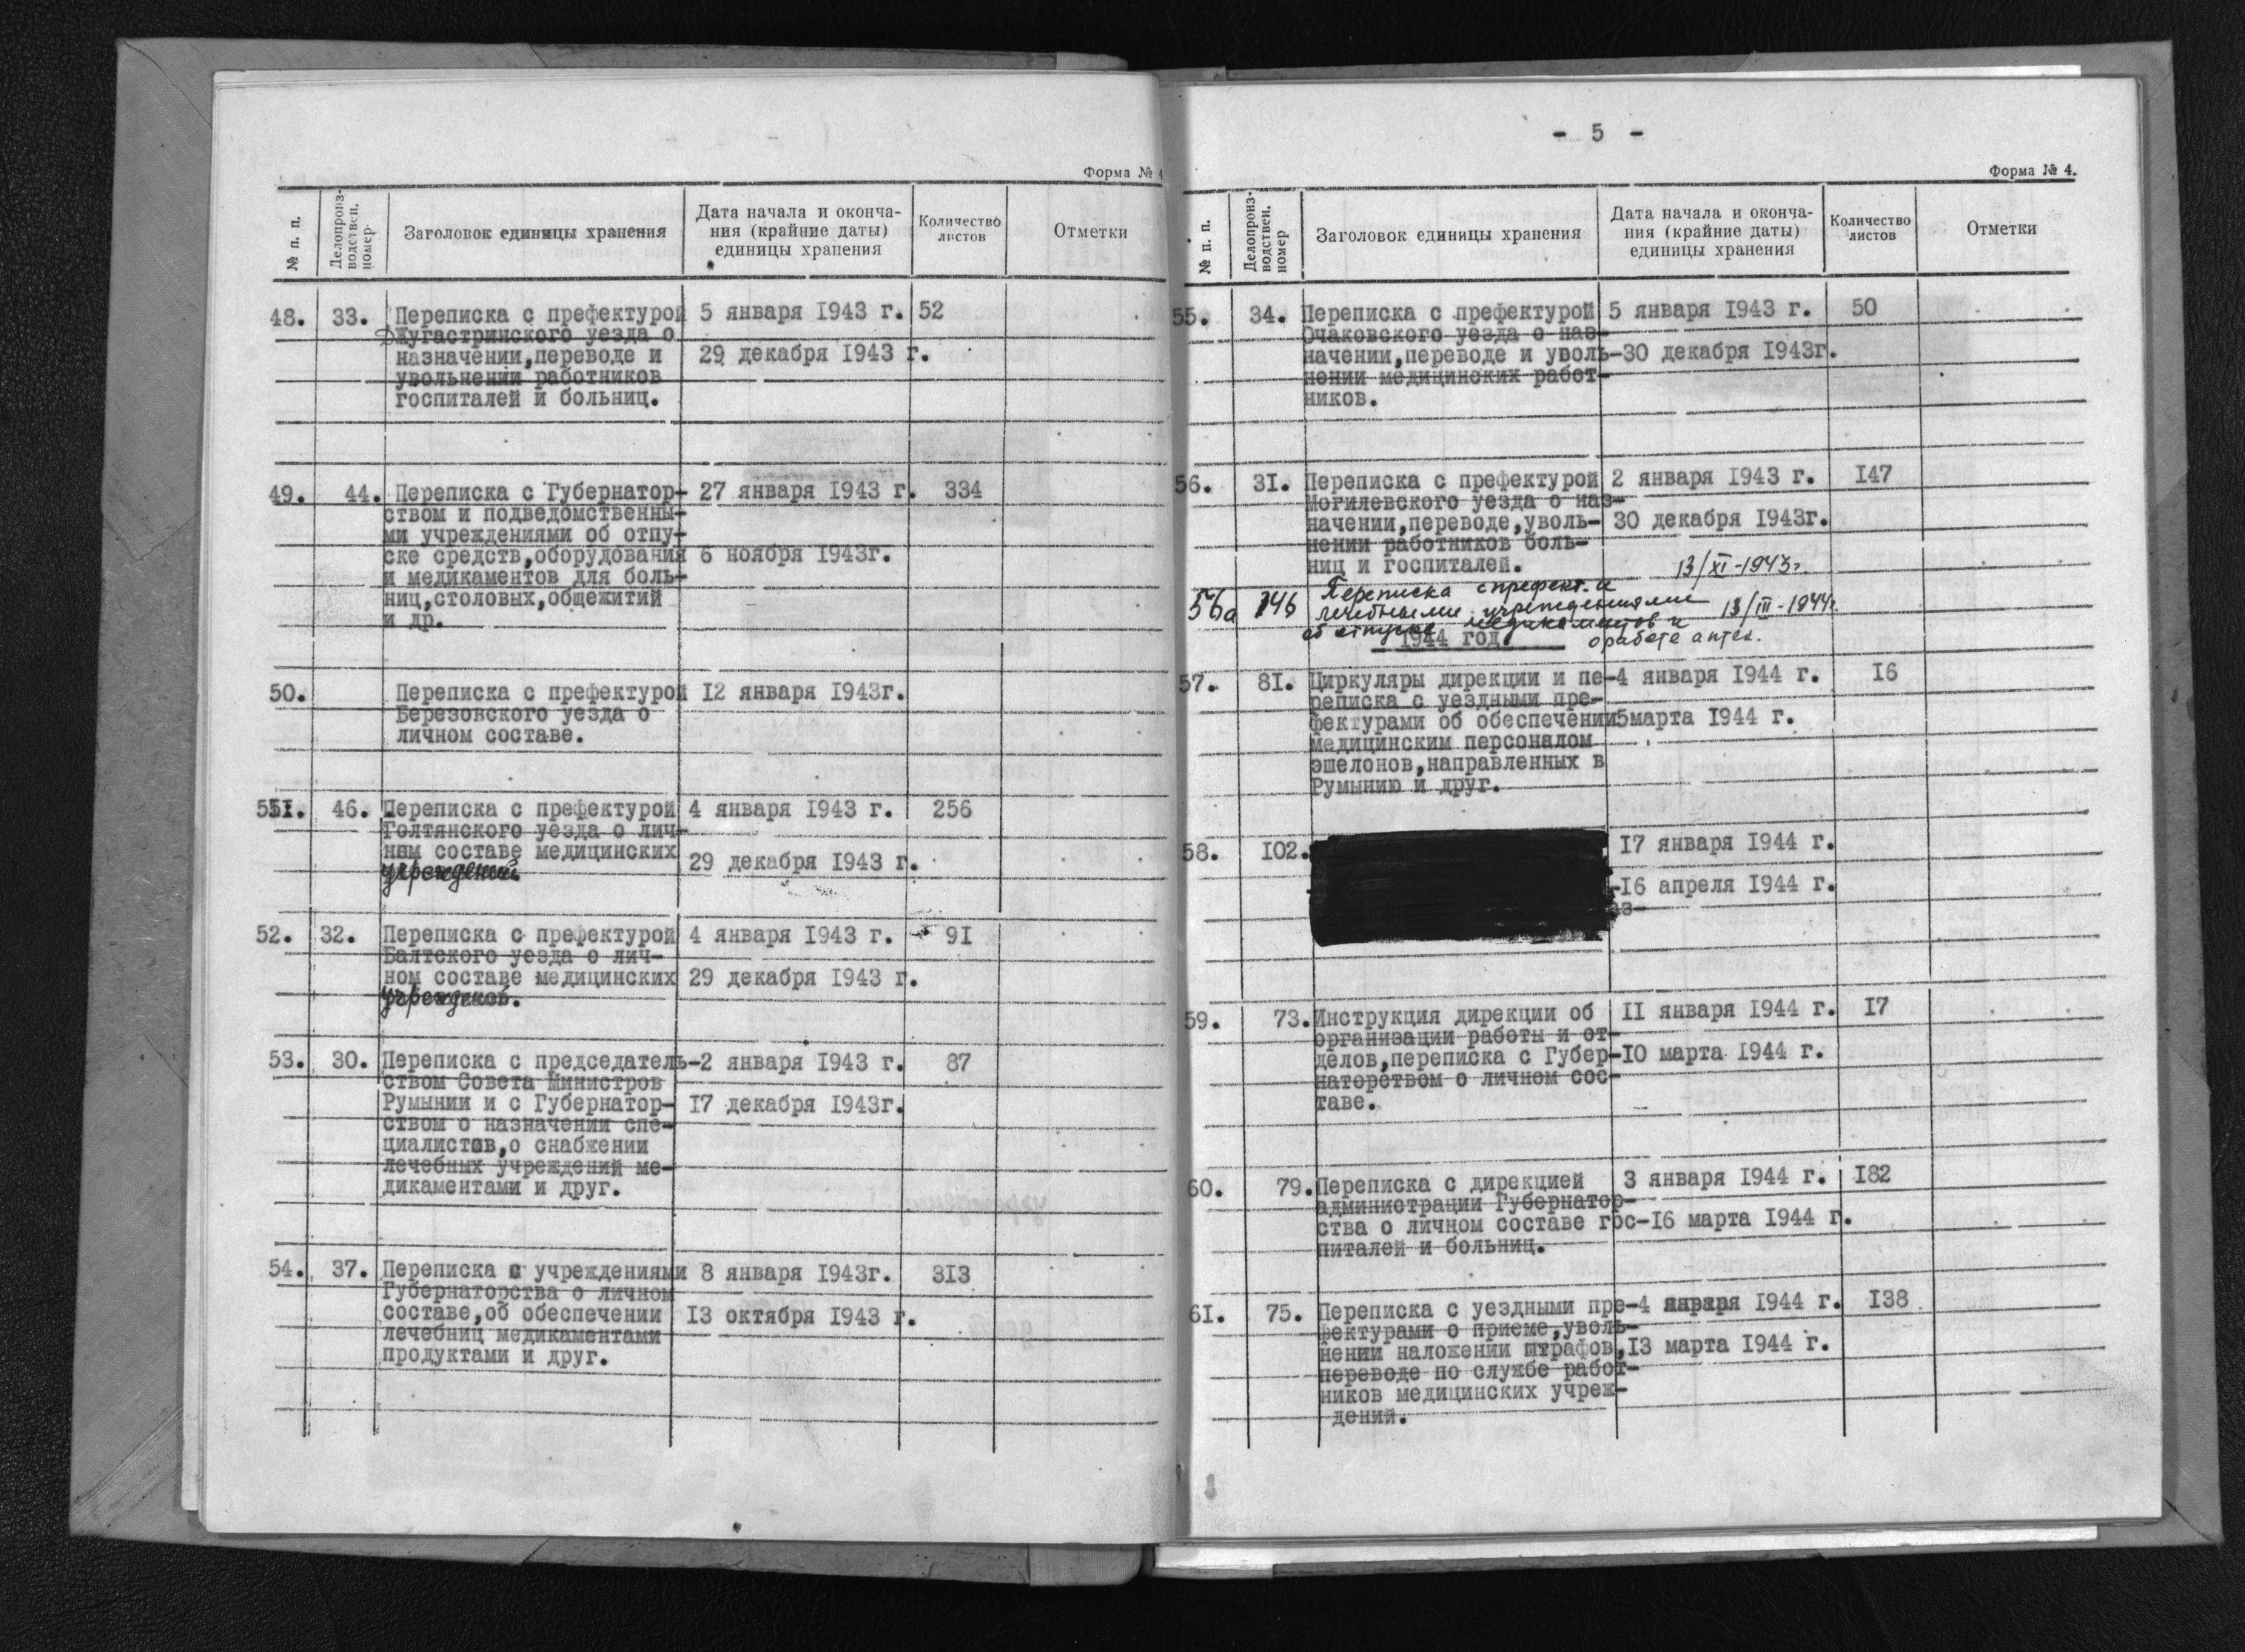 Форма № 4
№ п. п.
Делопроиз-
водствен.
номер
Заголовок единицы хранения
Дата начала и оконча-
ния (крайние даты)
единицы хранения
Количество
листов
Отметки
48. 33. Переписка с префектурой 5 января 1943 г. 52
Жугастринского уезда о
назначении,переводе и 29 декабря 1943 г.
увольнении работников
госпиталей и больниц.
49. 44. Переписка с Губернатор- 27 января 1943 г. 334
ством и подведомственны-
ми учреждениями об отпу-
ске средств,оборудования 6 ноября 1943г.
и медикаментов для боль-
ниц,столовых,общежитий
и др.
50. Переписка с префектурой 12 января 1943г.
Березовского уезда о
личном составе.
51. 46. Переписка с префектурой 4 января 1943 г. 256
Голтянского уезда о лич-
ном составе медицинских 29 декабря 1943 г.
учреждений.
52. 32. Переписка с префектурой 4 января 1943 г. 91
Балтского уезда о лич-
ном составе медицинских 29 декабря 1943 г.
учреждений.
53. 30. Переписка с председатель-2 января 1943 г. 87
ством Совета Министров
Румынии и с Губернатор- 17 декабря 1943г.
ством о назначении спе-
циалистов,о снабжении
лечебных учреждений ме-
дикаментами и друг.
54. 37. Переписка с учреждениями 8 января 1943г. 313
Губернаторства о личном
составе,об обеспечении 13 октября 1943 г.
лечебниц медикаментами
продуктами и друг.
- 5 -
Форма № 4.
№ п. п.
Делопроиз-
водствен.
номер
Заголовок единицы хранения
Дата начала и оконча-
ния (крайние даты)
единицы хранения
Количество
листов
Отметки
55. 34. Переписка с префектурой 5 января 1943 г. 50
Очаковского уезда о наз-
начении,переводе и уволь-30 декабря 1943г.
нении медицинских работ-
ников.
56. 31. Переписка с префектурой 2 января 1943 г. 147
Могилевского уезда о наз-
начении,переводе,уволь- 30 декабря 1943г.
нении работников боль-
ниц и госпиталей.
56а 146 Переписка с префект. и 13/XI-1943г.
лечебными учреждениями 13/III-1944г.
об отпуске медикаментов и
о работе аптек.
1944 год.
57. 81. Циркуляры дирекции и пе-4 января 1944 г. 16
реписка с уездными пре-
фектурами об обеспечении5марта 1944 г.
медицинским персоналом
эшелонов,направленных в
Румынию и друг.
58. 102. 17 января 1944 г.
-16 апреля 1944 г.
з-
59. 73.Инструкция дирекции об 11 января 1944 г. 17
организации работы и от-
делов,переписка с Губер-10 марта 1944 г.
наторством о личном сос-
таве.
60. 79.Переписка с дирекцией 3 января 1944 г. 182
администрации Губернатор-
ства о личном составе гос-16 марта 1944 г.
питалей и больниц.
61. 75. Переписка с уездными пре-4 января 1944 г. 138
фектурами о приеме,уволь-
нении наложении штрафов,13 марта 1944 г.
переводе по службе работ-
ников медицинских учреж-
дений.